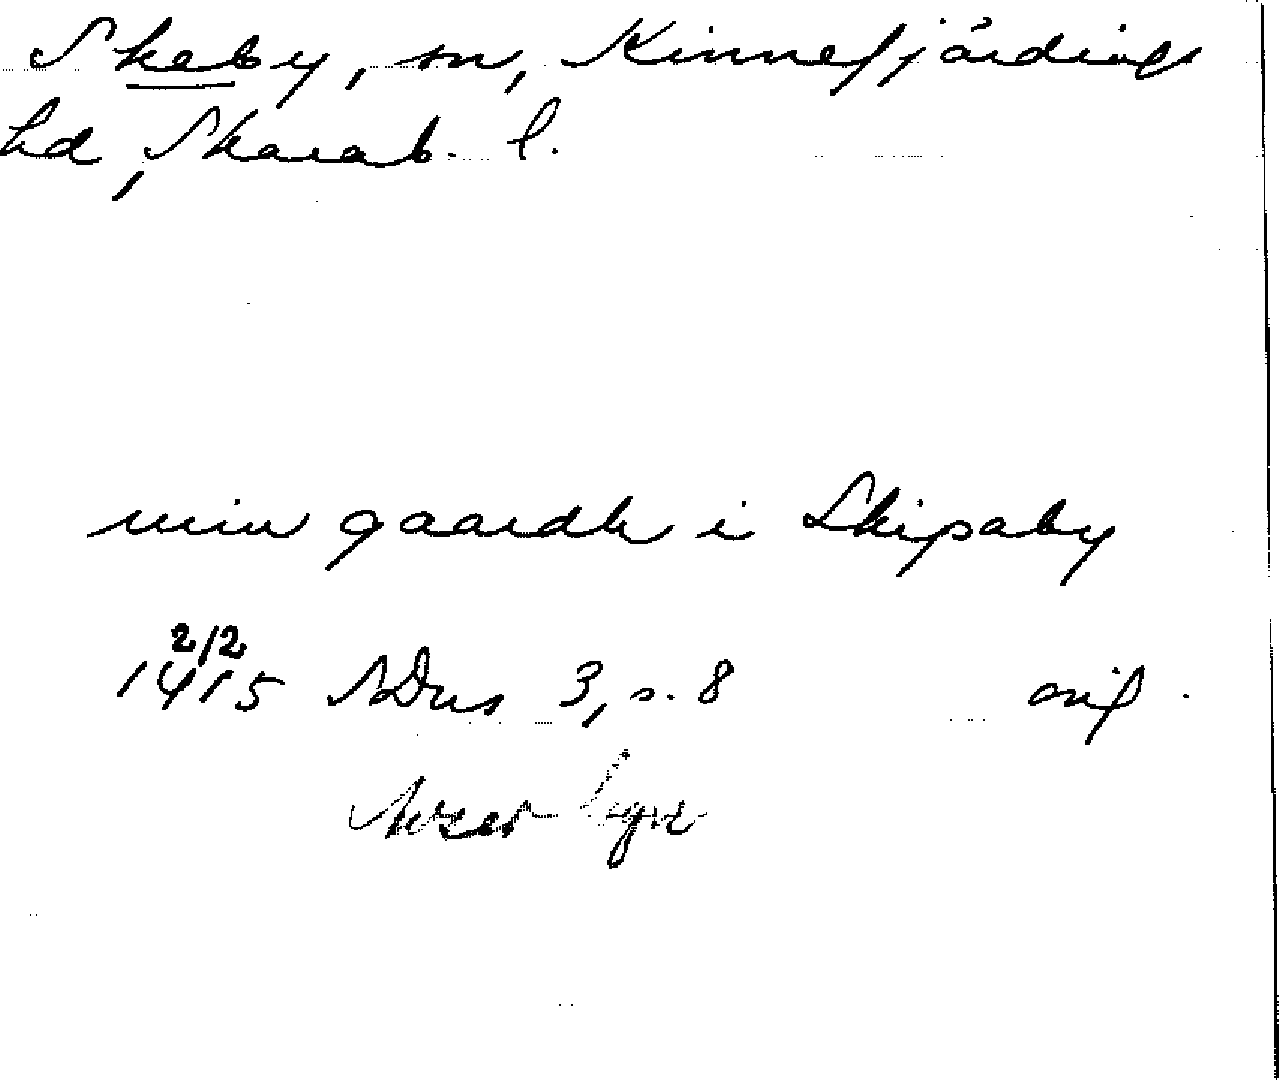 Skeby, sn, Kinnefjärdings
hd, Skarab. l.
min gaardh i Skipaby
2/2
1415 SDns 3, s. 8 orig.